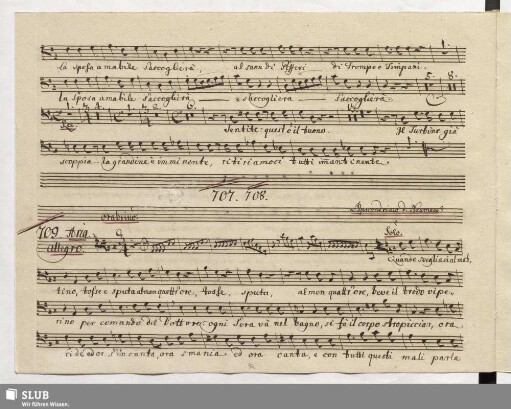 la sposa amabile s'accoglierà, al suon di Pifferi di Trombe e Timpani.
5. 8.
la Sposa amabile s'accoglierà s'accoglierà s'accoglierà.
Sentite: quest'è il tuono. Il Turbine già
scoppia la grandine è imminente, ritiriamoci tutti
707. 708.
709. Aria.
Allegro.
Solo.
Quando svegliasi al mat,
tino, tosse e sputa almen quatt'ore, tosse, sputa, almen quatt'ore, beve il brodo vipe,
rino per comando del Dottore: ogni sera và nel bagno, si fà il corpo stropicciar, ora
ride ed or s'incanta, ora smania ed ora canta, e con tutti questi mali parla
SLUB
Wir führen Wissen.